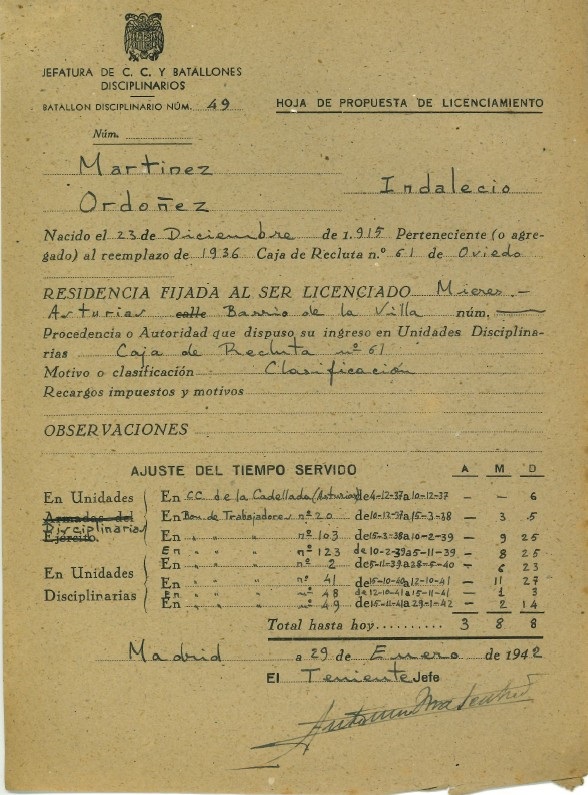 JEFATURA DE C. C. Y BATALLONES
DISCIPLINARIOS
BATALLON DISCIPLINARIO NÚM. 49
HOJA DE PROPUESTA DE LICENCIAMIENTO
Núm.
Martinez
Indalecio
Ordoñez
Nacido el 23 de Diciembre de 1.915 Perteneciente (o agre-
gado) al reemplazo de 1936 Caja de Recluta n.º 61 de Oviedo
RESIDENCIA FIJADA AL SER LICENCIADO Mieres.-
Asturias calle Barrio de la Villa núm.
Procedencia o Autoridad que dispuso su ingreso en Unidades Disciplina-
rias Caja de Recluta nº 61
Motivo o clasificación Clasificación
Recargos impuestos y motivos
OBSERVACIONES
AJUSTE DEL TIEMPO SERVIDO A M D
En Unidades En CC. de la Cadellada (Asturias) de 4-12-37 a 10-12-37 - - 6
Armadas del Disciplinarias En Bon. de Trabajadores nº 20 de 10-12-37 a 15-3-38 - 3 5
Ejército. En " " " nº 103 de 15-3-38 a 10-2-39 - 9 25
En " " " nº 123 de 10-2-39 a 5-11-39 - 8 25
En Unidades En " " " nº 2 de 5-11-39 a 28-5-40 - 6 23
En " " " nº 41 de 15-10-40 a 12-10-41 - 11 27
Disciplinarias En " " " nº 48 de 12-10-41 a 15-11-41 - 1 3
En " " " nº 49 de 15-11-41 a 29-1-42 - 2 14
Total hasta hoy.......... 3 8 8
Madrid a 29 de Enero de 1942
El Teniente Jefe